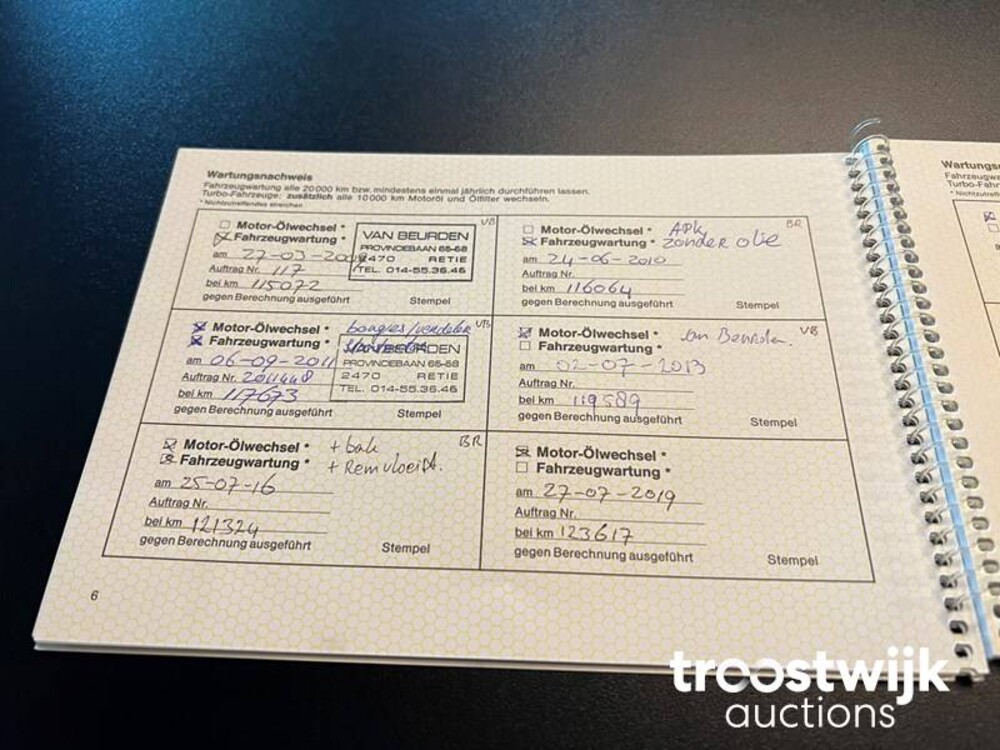 Wartungsnachweis
Fahrzeugwartung alle 20000 km bzw. mindestens einmal jährlich durchführen lassen.
Turbo-Fahrzeuge: zusätzlich alle 10000 km Motoröl und Ölfilter wechseln.
* Nichtzutreffendes streichen
VB
Motor-Ölwechsel *
Fahrzeugwartung *
am 27-03-2009
Auftrag Nr. 117
bei km 115072
gegen Berechnung ausgeführt
Stempel
VAN BEURDEN
PROVINCEBAAN 66-68
2470 RETIE
TEL. 014-55.36.46
BR
Motor-Ölwechsel * APK
Fahrzeugwartung * zonder olie
am 24-06-2010
Auftrag Nr.
bei km 116064
gegen Berechnung ausgeführt
Stempel
VB
Motor-Ölwechsel * bougies/verdeler
Fahrzeugwartung *
am 06-09-2011
Auftrag Nr. 2011448
bei km 117673
gegen Berechnung ausgeführt
Stempel
VAN BEURDEN
PROVINCEBAAN 66-68
2470 RETIE
TEL. 014-55.36.46
VB
Motor-Ölwechsel * van Beurden.
Fahrzeugwartung *
am 02-07-2013
Auftrag Nr.
bei km 119589
gegen Berechnung ausgeführt
Stempel
BR
Motor-Ölwechsel * + bak
Fahrzeugwartung * + Remvloeist.
am 25-07-16
Auftrag Nr.
bei km 121324
gegen Berechnung ausgeführt
Stempel
Motor-Ölwechsel *
Fahrzeugwartung *
am 27-07-2019
Auftrag Nr.
bei km 123617
gegen Berechnung ausgeführt
Stempel
6
troostwijk
auctions